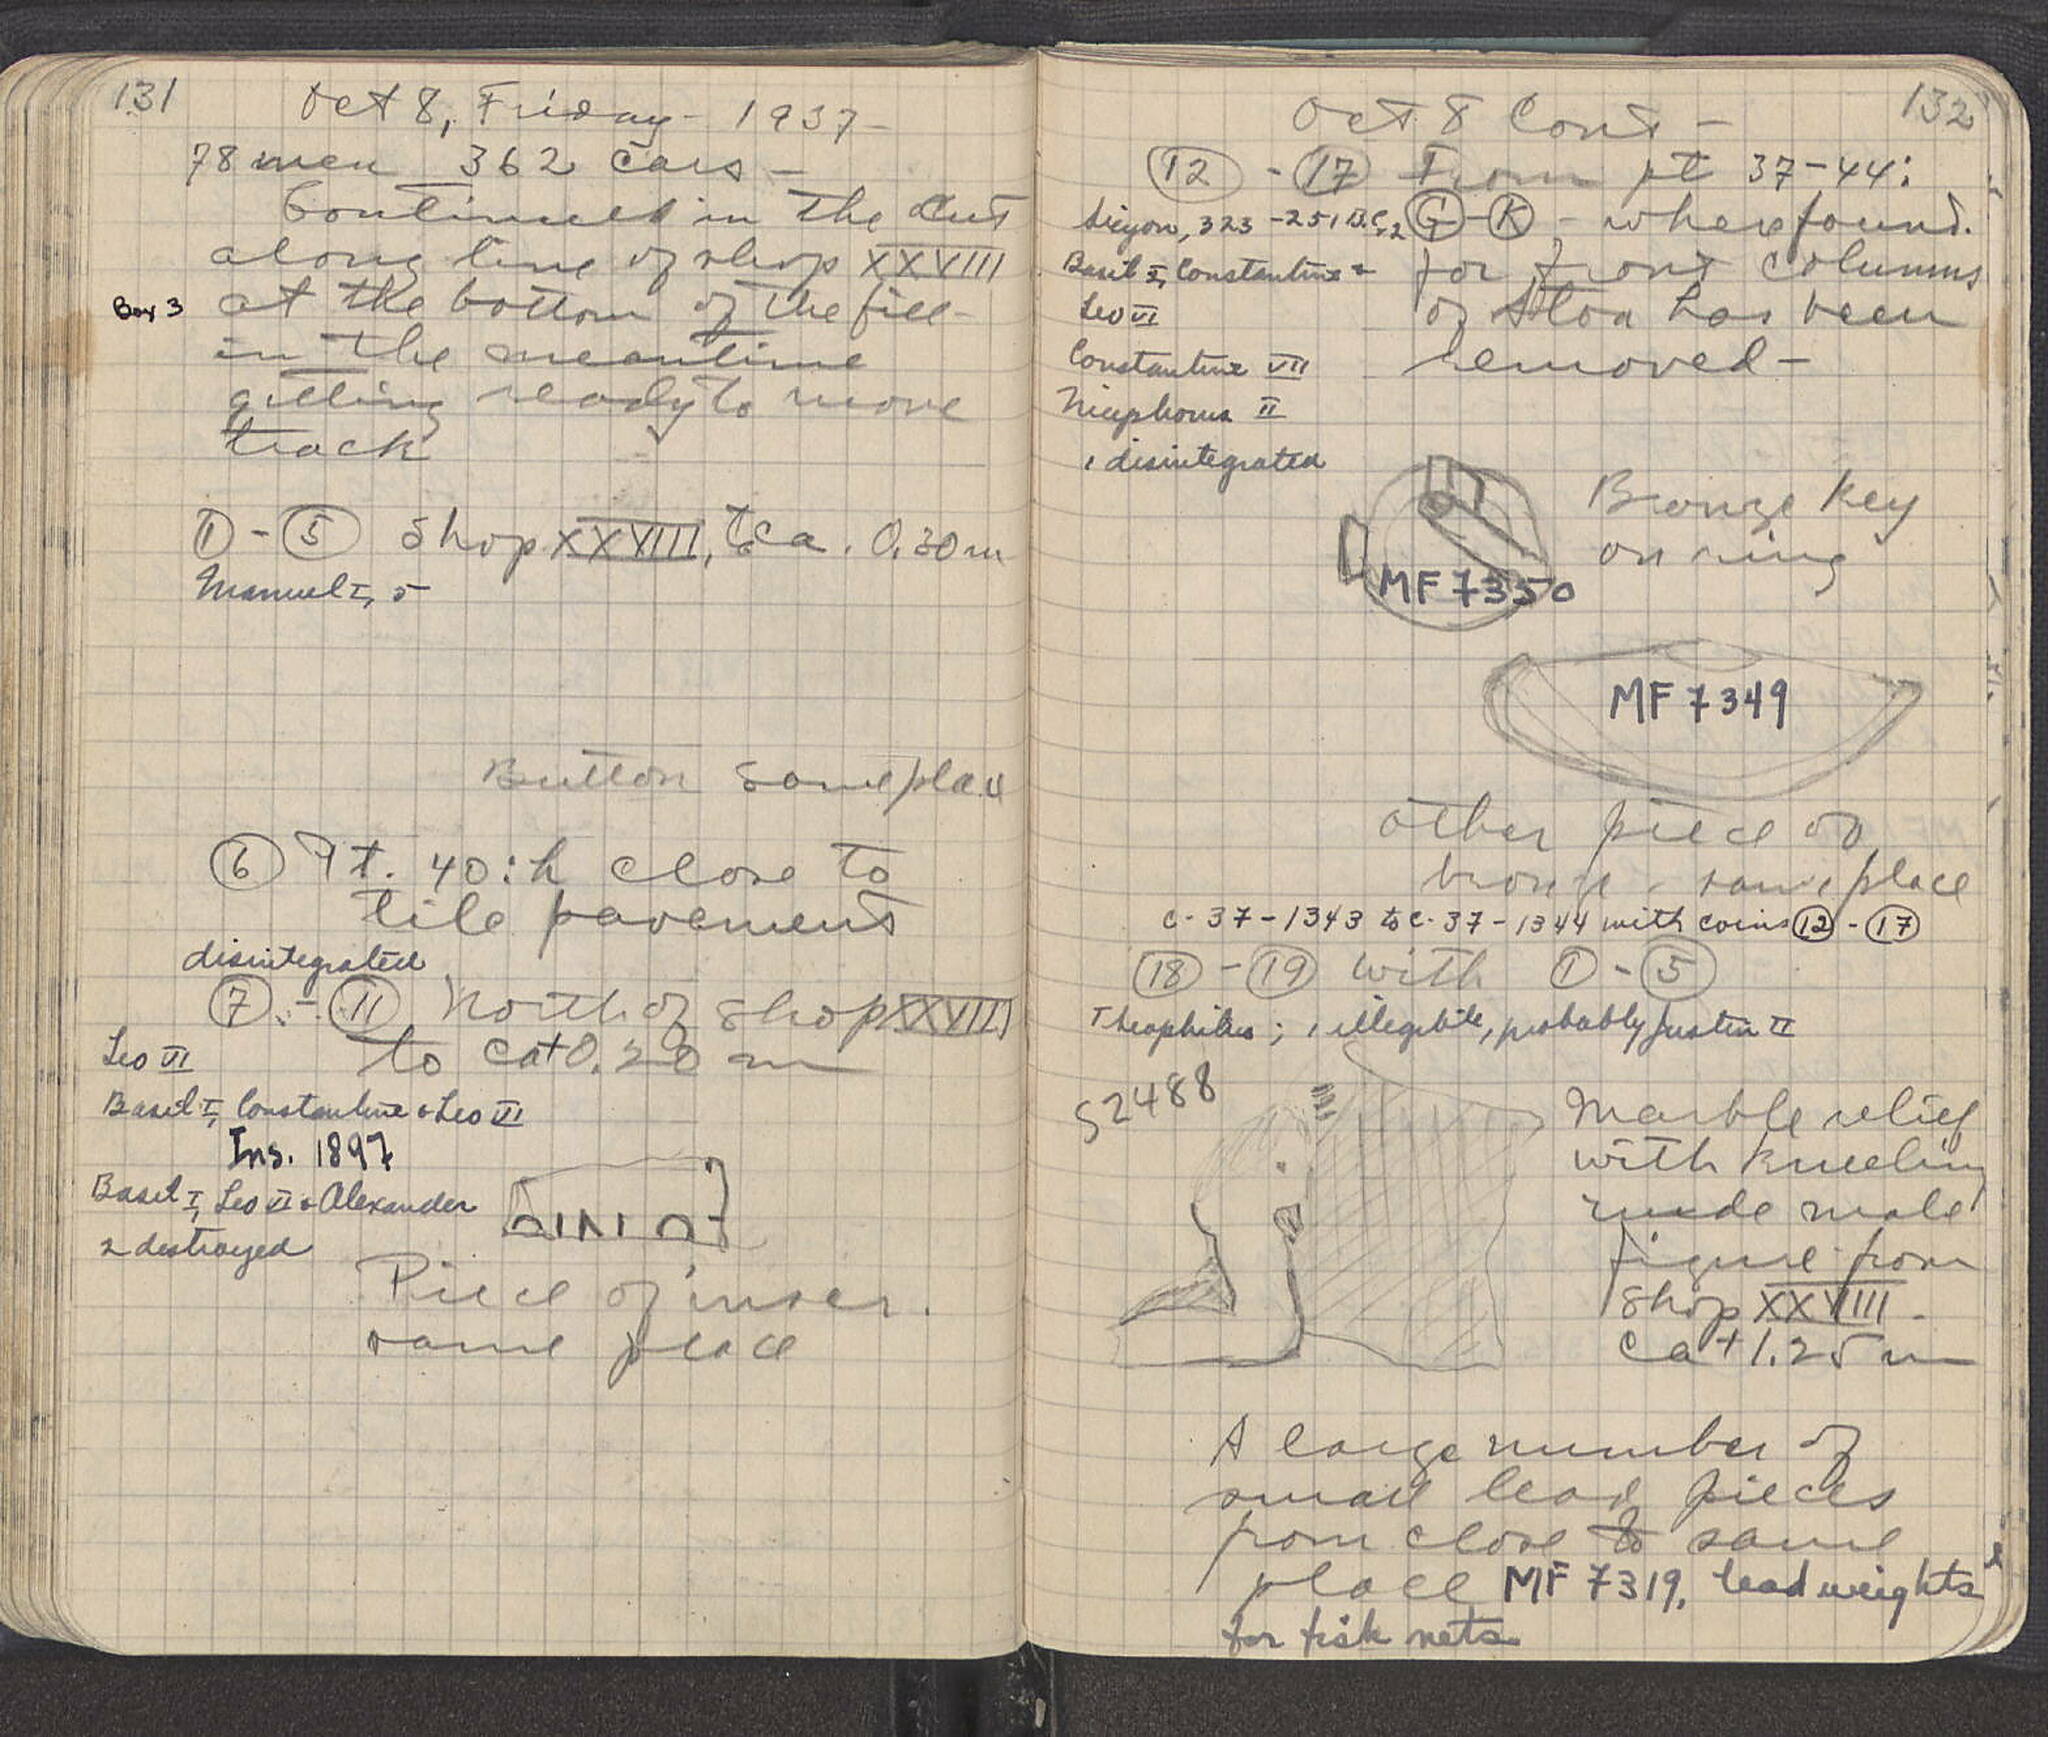 131
Oct 8, Friday - 1937 -
78 men 362 cars -
Continued in the cut
along line of shop XXVIII
Box 3
at the bottom of the fill -
in the meantime
getting ready to move
track
1 - 5 Shop XXVIII, to ca. 0.30 m
Manuel I, 5
Button same place
6 Pt. 40:h close to
tile pavement
disintegrated
7 - 11 North of shop XXVIII
to ca + 0.20 m
Leo VI
Basil I, Constantine & Leo VI
Ins. 1897
Basil I, Leo VI & Alexander
2 destroyed
Piece of inscr.
same place
132
Oct 8 Cont -
12 - 17 From pt 37-44:
G - K - where found.
for front columns
of Stoa has been
removed -
Sicyon, 323-251 B.C., 2
Basil I, Constantine &
Leo VI
Constantine VII
Nicephorus II
1 disintegrated
Bronze key
on ring
MF 7350
MF 7349
other piece of
bronze - same place
C-37-1343 to C-37-1344 with coins 12 - 17
18 - 19 with 1 - 5
Theophilus; 1 illegible, probably Justin II
S2488
Marble relief
with kneeling
nude male
figure from
shop XXVIII -
ca + 1.25 m
A large number of
small lead pieces
from close to same
place MF 7319, lead weights
for fish nets